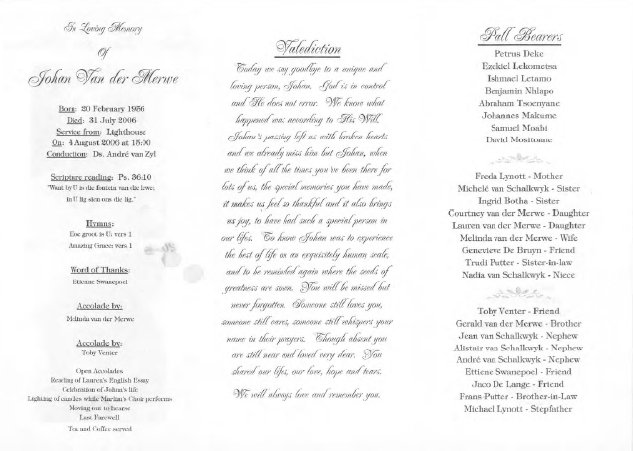 In Loving Memory
Of
Johan Van der Merwe
Born: 20 February 1956
Died: 31 July 2006
Service from: Lighthouse
On: 4 August 2006 at 15:00
Conduction: Ds. André van Zyl
Scripture reading: Ps. 36:10
"Want by U is die fontein van die lewe;
in U lig sien ons die lig."
Hymns:
Hoe groot is U: vers 1
Amazing Grace: vers 1
Word of Thanks:
Etienne Swanepoel
Accolade by:
Melinda van der Merwe
Accolade by:
Toby Venter
Open Accolades
Reading of Lauren's English Essay
Celebration of Johan's life
Lighting of candles while Martian's Choir performs
Moving out to hearse
Last Farewell
Tea and Coffee served
Valediction
Today we say goodbye to a unique and
loving person, Johan. God is in control
and He does not error. We know what
happened was according to His Will.
Johan's passing left us with broken hearts
and we already miss him but Johan, when
we think of all the times you've been there for
lots of us, the special memories you have made,
it makes us feel so thankful and it also brings
us joy, to have had such a special person in
our lifes. To know Johan was to experience
the best of life on an exquisitely human scale,
and to be reminded again where the seeds of
greatness are sown. You will be missed but
never forgotten. Someone still loves you,
someone still cares, someone still whispers your
name in their prayers. Though absent you
are still near and loved very dear. You
shared our lifes, our love, hope and tears.
We will always love and remember you.
Pall Bearers
Petrus Deke
Ezekiel Lekometsa
Ishmael Letamo
Benjamin Nhlapo
Abraham Tsoenyane
Johannes Makume
Samuel Moabi
David Mositoane
Freda Lynott - Mother
Michelé van Schalkwyk - Sister
Ingrid Botha - Sister
Courtney van der Merwe - Daughter
Lauren van der Merwe - Daughter
Melinda van der Merwe - Wife
Genevieve De Bruyn - Friend
Trudi Putter - Sister-in-law
Nadia van Schalkwyk - Niece
Toby Venter - Friend
Gerald van der Merwe - Brother
Jean van Schalkwyk - Nephew
Alistair van Schalkwyk - Nephew
André van Schalkwyk - Nephew
Ettiene Swanepoel - Friend
Jaco De Lange - Friend
Frans Putter - Brother-in-Law
Michael Lynott - Stepfather